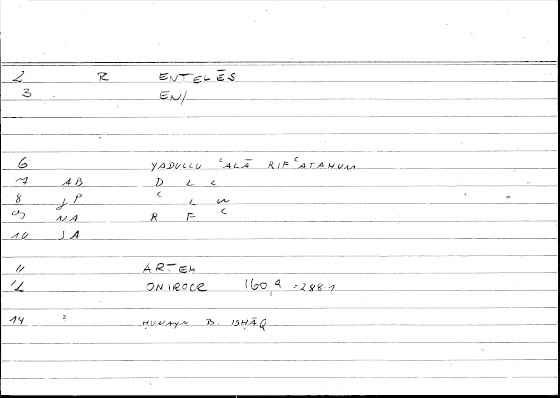 2 R ENTELĒS
3 EN/
6 YADULLU ʿALĀ RIFʿATAHUM
7 AB D L L
8 JP ʿ L W
9 NA R F ʿ
10 JA
11 ARTEM
12 ONIROCR 160,9 =288.1
14 ḤUNAYN B. ISḤĀQ